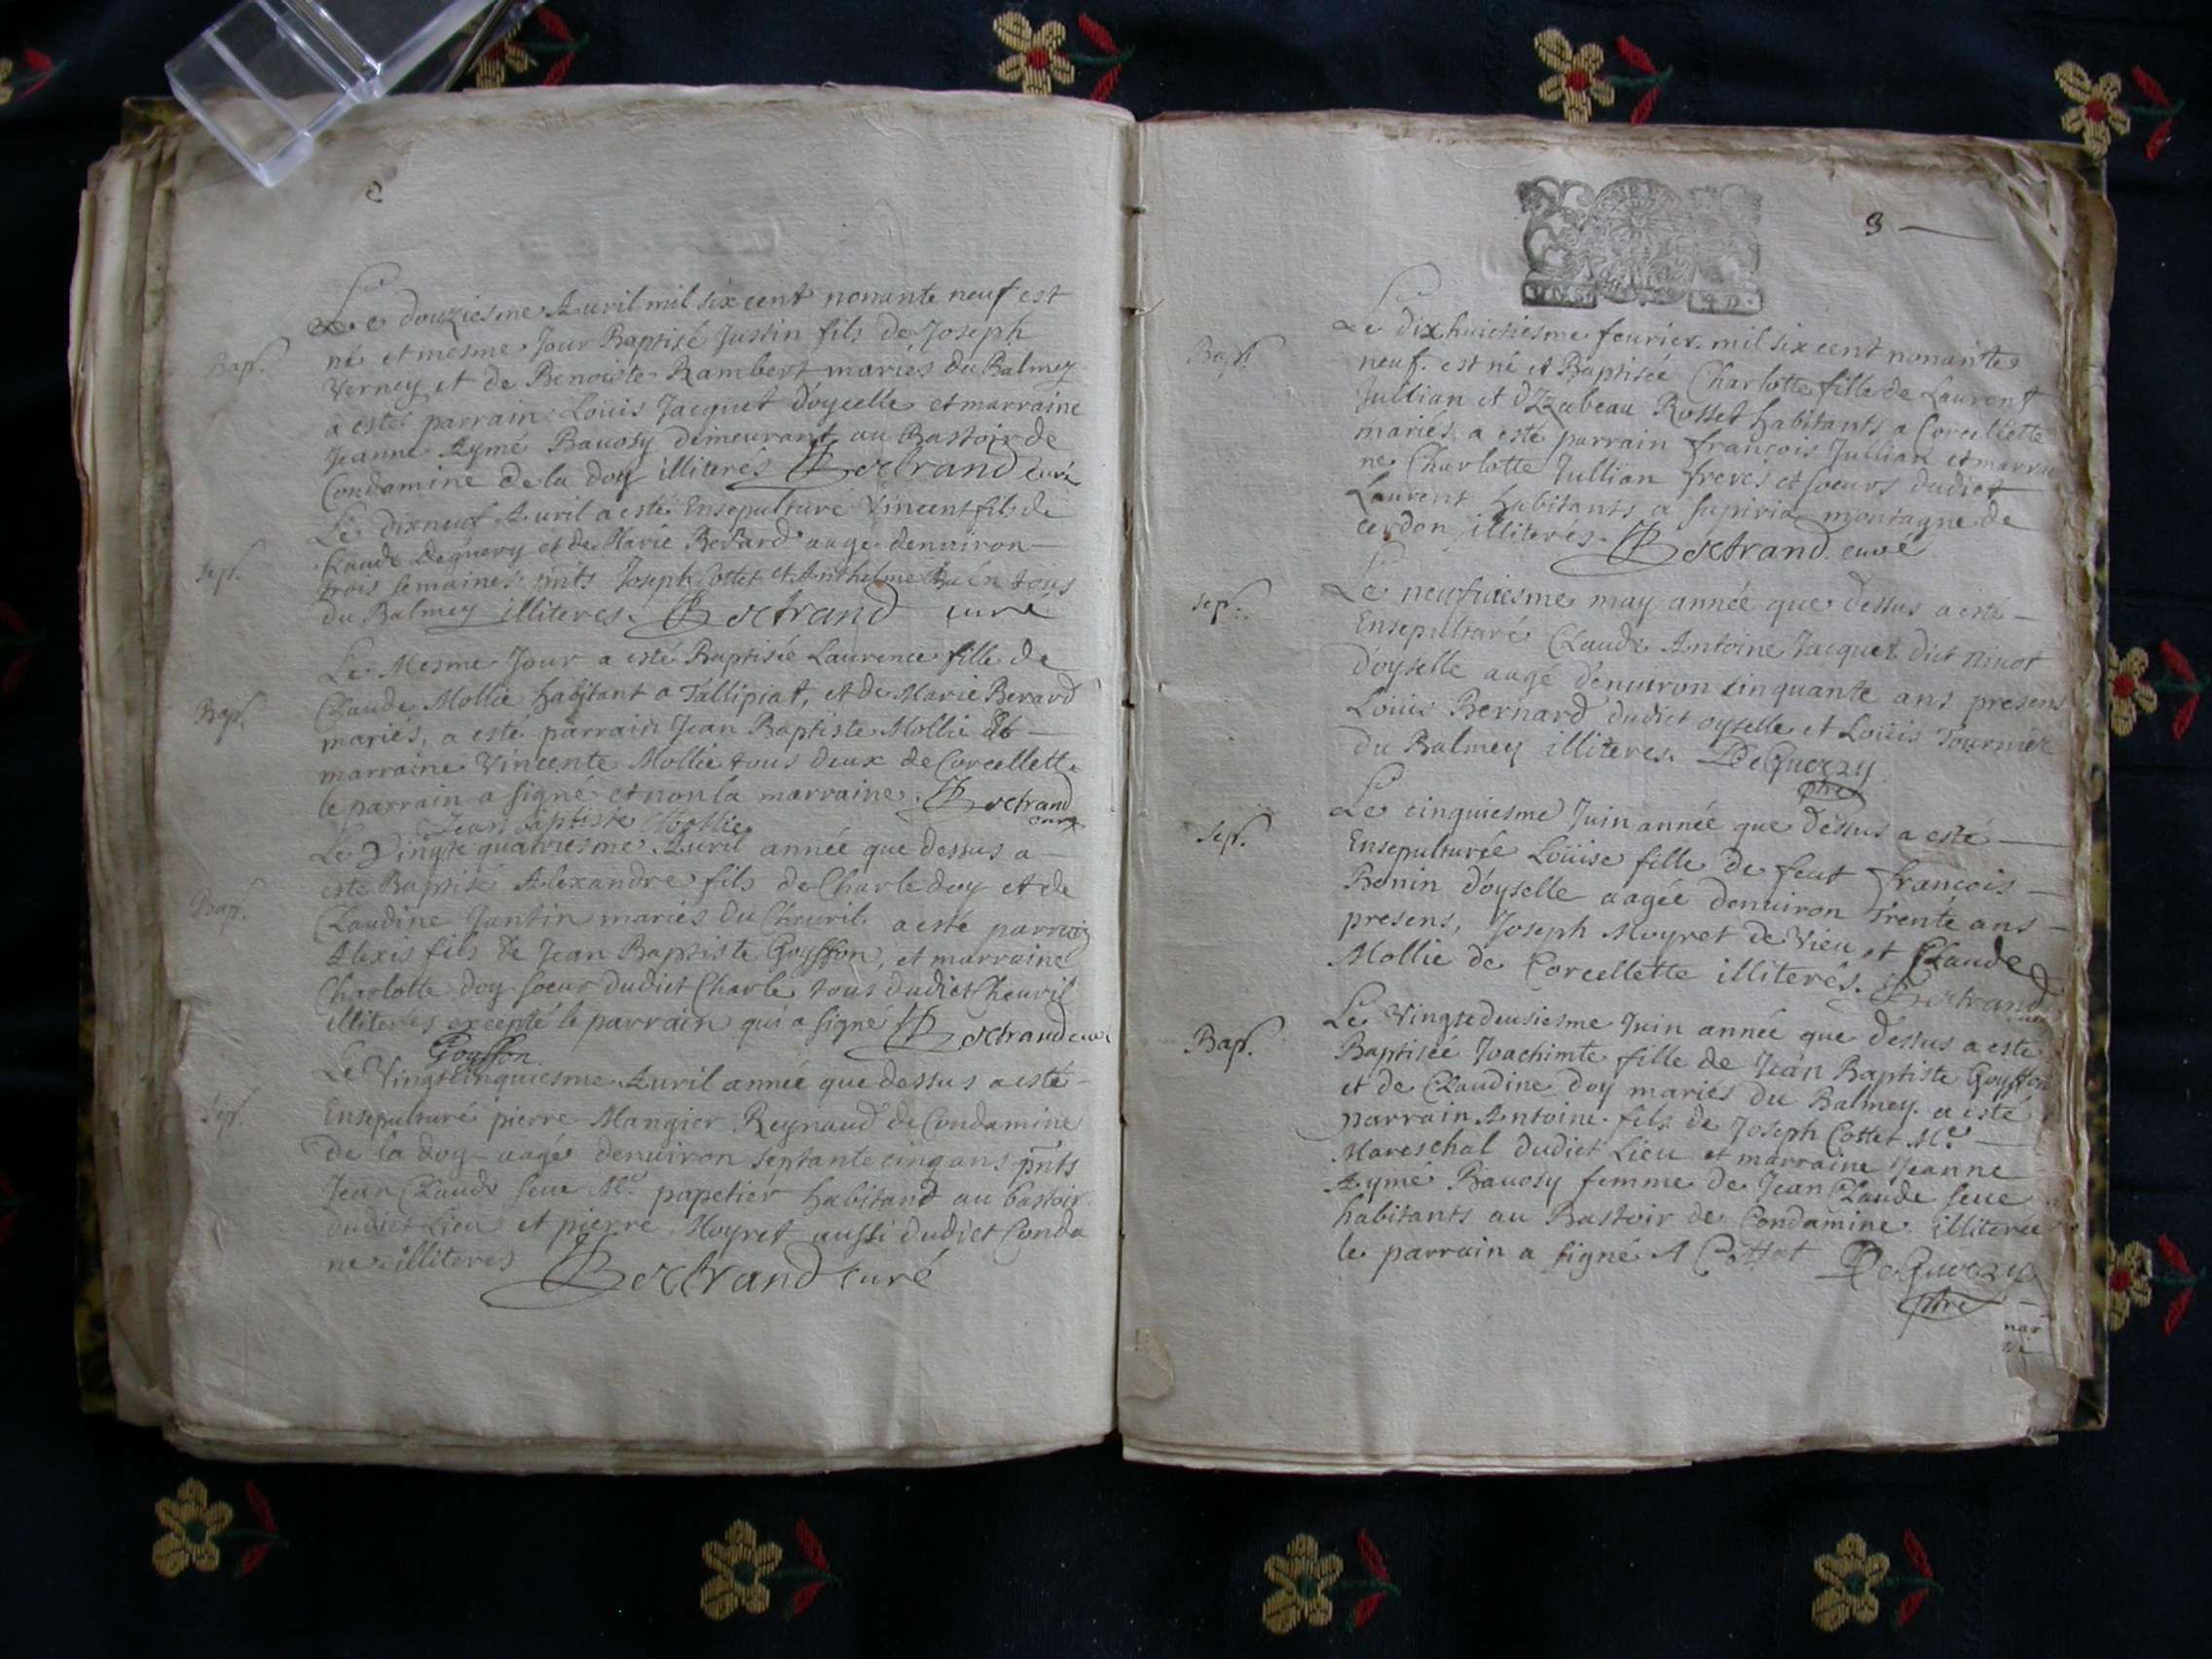 Le douziesme Auril mil six cent nonante neuf est
Bap.
né et mesme Jour Baptisé Justin fils de Joseph
Verney et de Benoiste Rambert mariés du Balmey
a esté parrain Loüis Jacquet d'oyselle et marraine
Jeanne Aymé Bauosy demeurant au Bastoir de
Condamine de la doy illiterés Bertrand curé
Le dixneuf Auril a esté Ensepulturé Vincent fils de
Sep.
Claude Deguery et de Marie Berard aagé denuiron
trois semaines pnts Joseph Cottet et Anthelme tous
du Balmey illiteres. Bertrand curé
Le Mesme Jour a esté Baptisée Laurence fille de
Bap.
Claude Mollie habitant a Tallipiat, et de Marie Berard
mariés, a esté parrain Jean Baptiste Mollie Et
marraine Vincente Mollie tous deux de Corcellette
le parrain a signé et non la marraine. Bertrand
curé
Jean Baptiste Mollie
Le Vingte quatriesme Auril année que dessus a
Bap.
este Baptisé Alexandre fils de Charle doy et de
Claudine Jantin mariés du Cheuril. a esté parrain
Alexis fils de Jean Baptiste Goyffon, et marraine
Charlotte doy soeur dudict Charle tous dudict Cheuril
illiterés excepté le parrain qui a signé Bertrand curé
Goyffon
Le Vingtcinquiesme Auril année que dessus a esté
Sep.
Ensepulturé pierre Mangier Reynaud de Condamine
de la doy aagé denuiron septante cinq ans pnts
Jean Claude seue Me. papetier habitand au bastoir
dudict Lieu et pierre Moyret aussi dudict Conda
ne illiteres
Bertrand curé
3
Le dixhuictiesme feurier mil six cent nonante
Bapt.
neuf. est né et Baptisée Charlotte fille de Laurent
Jullian et d'Izabeau Rosset habitants a Corcellette
mariés a esté parrain françois Jullian et marrai
ne Charlotte Jullian freres et soeurs dudict
Laurent habitants a sapiria montagne de
cerdon illiterés. Bertrand curé
Le neufuiesme may année que dessus a esté
Sep.
Ensepulturé Claude Antoine Jacquet dict ninot
d'oyselle aagé denuiron cinquante ans presens
Loüis Bernard dudict oyselle et Loüis Tournier
du Balmey illiteres. DeGuerry
ptre
Le cinquiesme Juin année que dessus a esté
Sep.
Ensepulturée Loüise fille de feut françois
Bonin d'oyselle aagée denuiron Trente ans
presens, Joseph Moyret de Vieu et Claude
Mollie de Corcellette illiterés. Bertrand
Le Vingtedeusiesme Juin année que dessus a esté
Bap.
Baptisée Joachimte fille de Jean Baptiste Goyffon
et de Claudine doy mariés du Balmey. a esté
parrain Antoine fils de Joseph Cottet Me.
Mareschal dudict Lieu et marraine Jeanne
Aymé Bauosy femme de Jean Claude seue
habitants au Bastoir de Condamine illiterée
le parrain a signé A Cottet DeGuerry
ptre